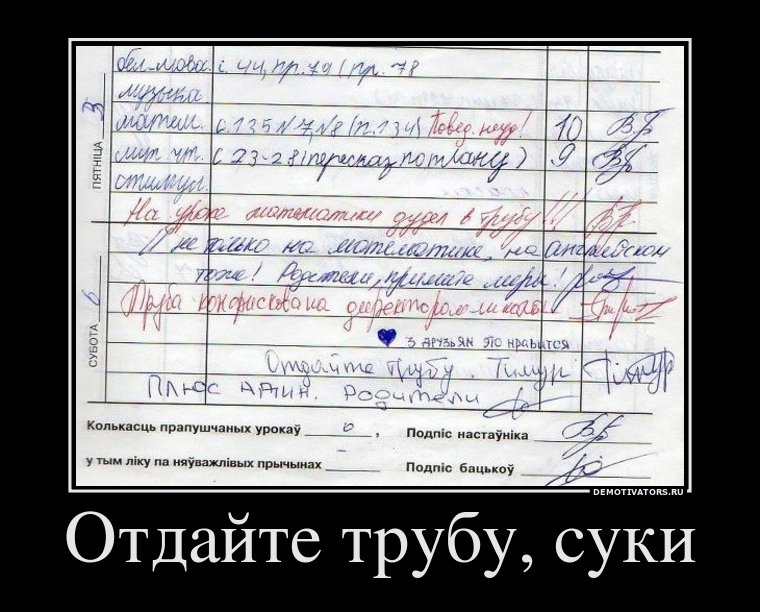 ПЯТНІЦА 3
бел. мова с. 44, пр. 79 (пр. 78
музыка
матем. с. 135 №7, №8 (п. 134) Повед. неуд! 10
лит. чт. с 23-28 (пересказ по плану) 9
стимул
На уроке математики дудел в трубу!!!
И не только на математике, на английском
тоже! Родители, примите меры!
СУББОТА 6
Труба конфискована директором школы
♥ 3 друзьям это нравится
Отдайте трубу. Тимур Тімур
Плюс адин. Родители
Колькасць прапушчаных урокаў 6 , Подпіс настаўніка
у тым ліку па няўважлівых прычынах – Подпіс бацькоў
DEMOTIVATORS.RU
Отдайте трубу, суки